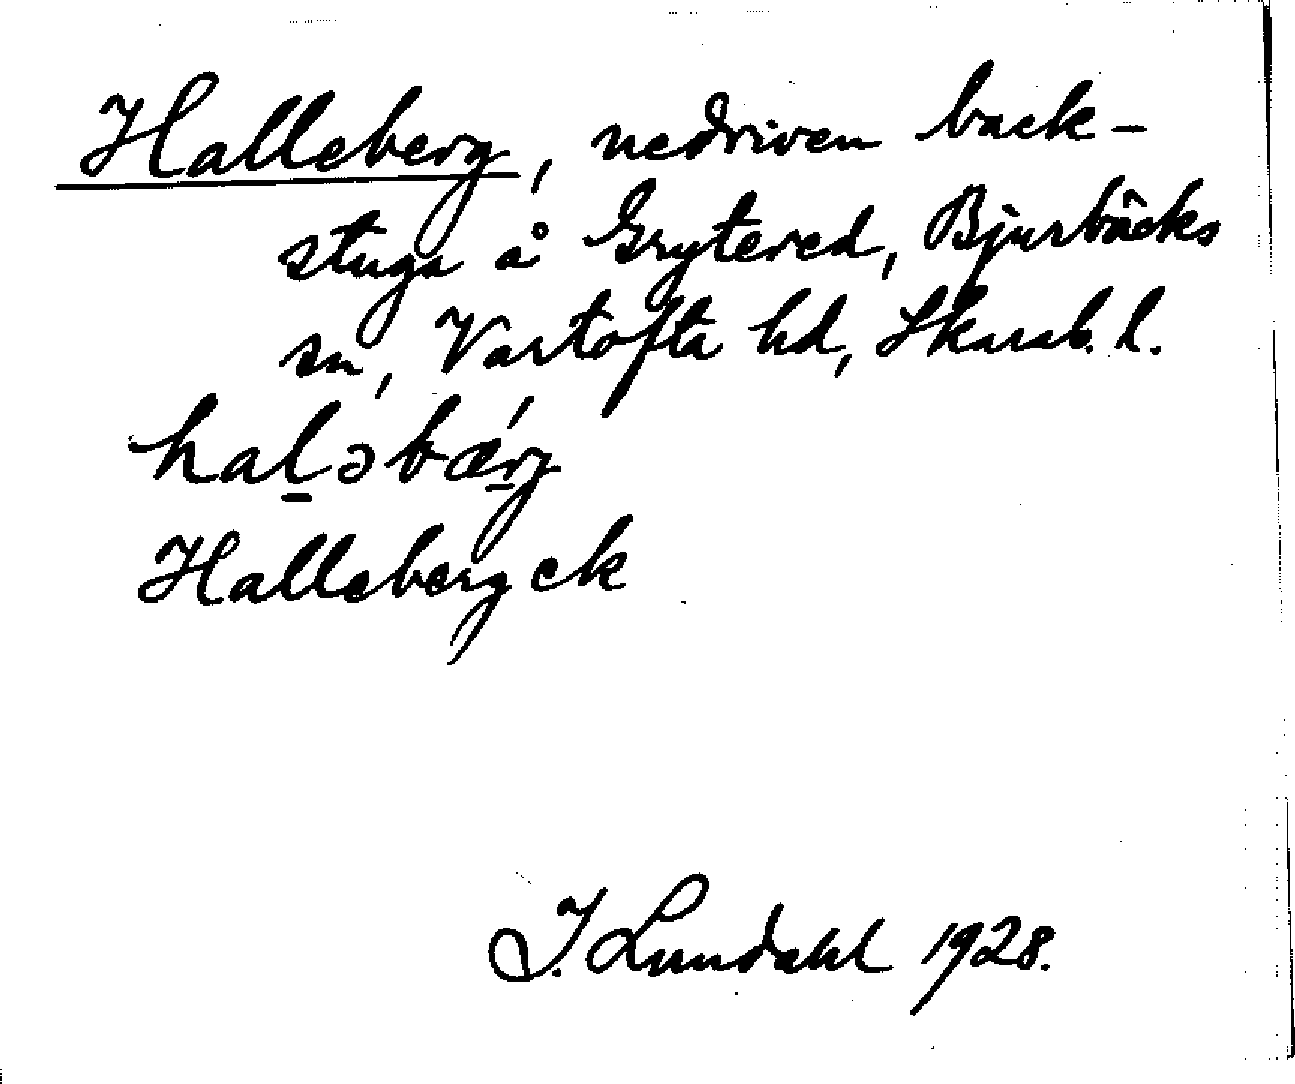 Halleberg, nedriven back-
stuga å Grytered, Bjurbäcks
sn, Vartofta hd, Skarab. l.
hal̠əbǽr̠g
Halleberg ek
I. Lundahl 1928.